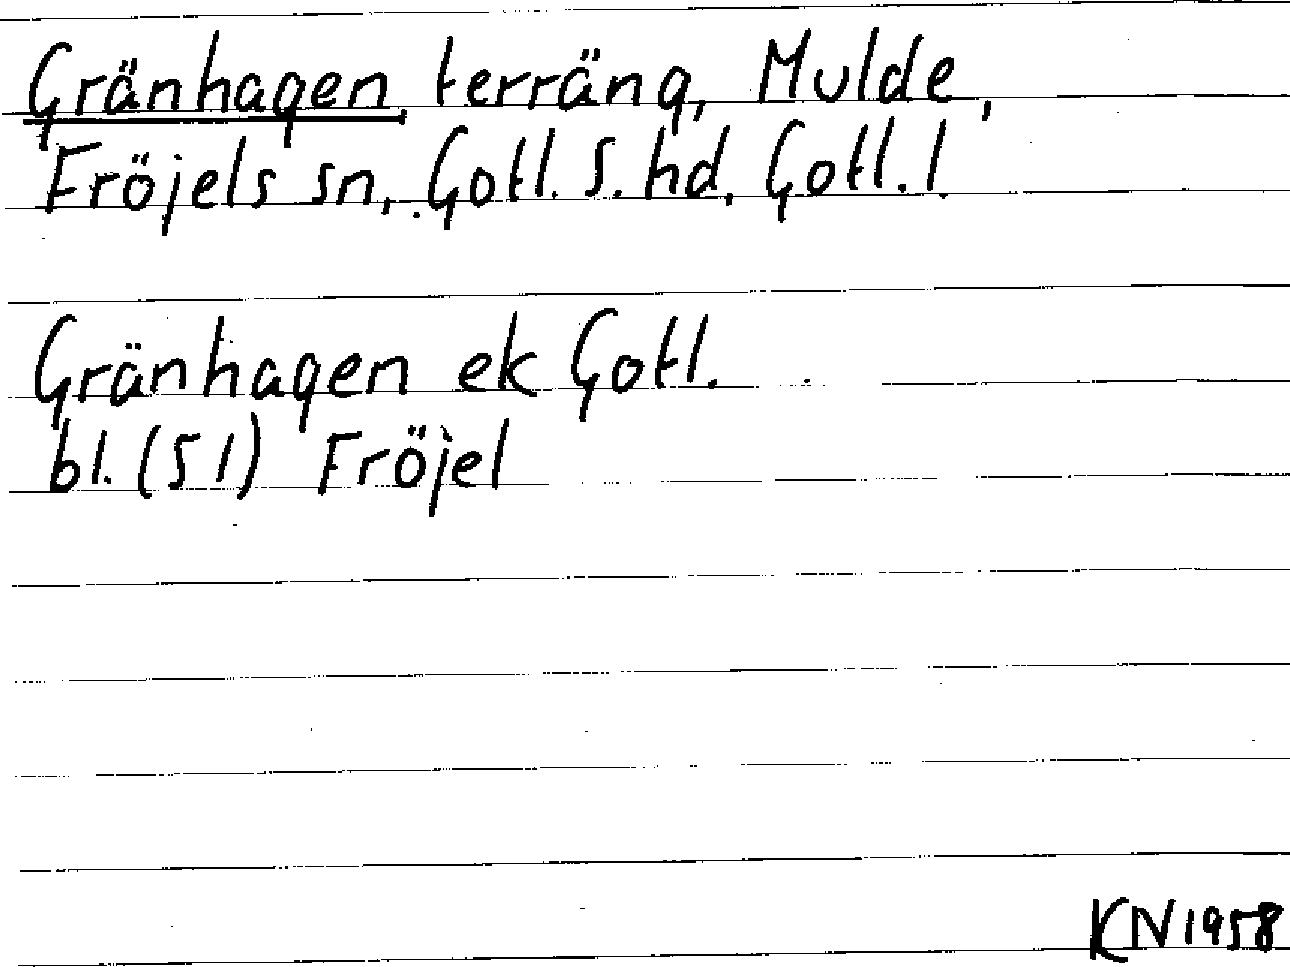 Gränhagen, terräng, Mulde,
Fröjels sn, Gotl. S. hd, Gotl. l.
Gränhagen ek Gotl.
bl. (51) Fröjel
KN 1958